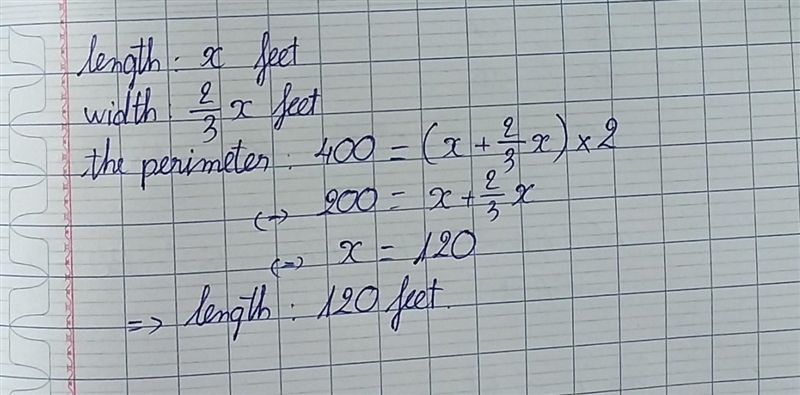 length: x feet
width: 2/3 x feet
the perimeter: 400 = (x + 2/3 x) × 2
<-> 200 = x + 2/3 x
<=> x = 120
=> length: 120 feet.